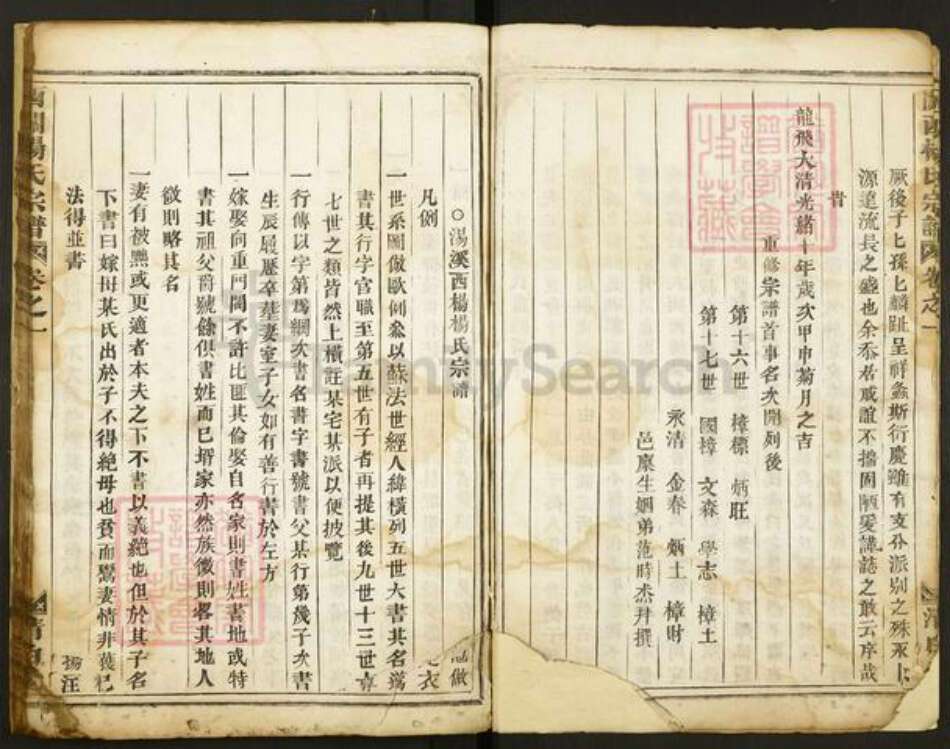 厥後子匕孫匕麟趾呈祥螽斯衍慶雖有支分派別之殊
源遠流長之盛也余忝居戚誼不揣固陋爰譁誌之敢云序哉
旹
龍飛大清光緒十年歲次甲申菊月之吉
重修宗譜首事名次開列後
第十六世 樟標 炳旺
第十七世 國樟 文森 學志 樟土
永清 金春 炳土 樟財
邑廩生姻弟范時 拜撰
○湯溪西楊楊氏宗譜
凡例
一世系圖倣歐例叅以蘇法世經人緯橫列五世大書其名
書其行字官職至第五世有子者再提其後九世十三世
七世之類皆然上橫註某宅某派以便披覽
一行傳以字第爲綱次書名書字書號書父某行第幾子次書
生辰履歷卒葬妻室子女如有善行書於左方
一嫁娶向重門閥不許比匪其倫娶自名家則書姓書地或特
書其祖父爵號餘俱書姓而已壻家亦然族微則畧其地人
微則略其名
一妻有被黜或更適者本夫之下不書以義絶也但於其子名
下書曰嫁母某氏出於子不得絶母也貧而鬻妻情非獲已
法得並書
楊氏宗譜 卷之一
楊氏宗譜 卷之一